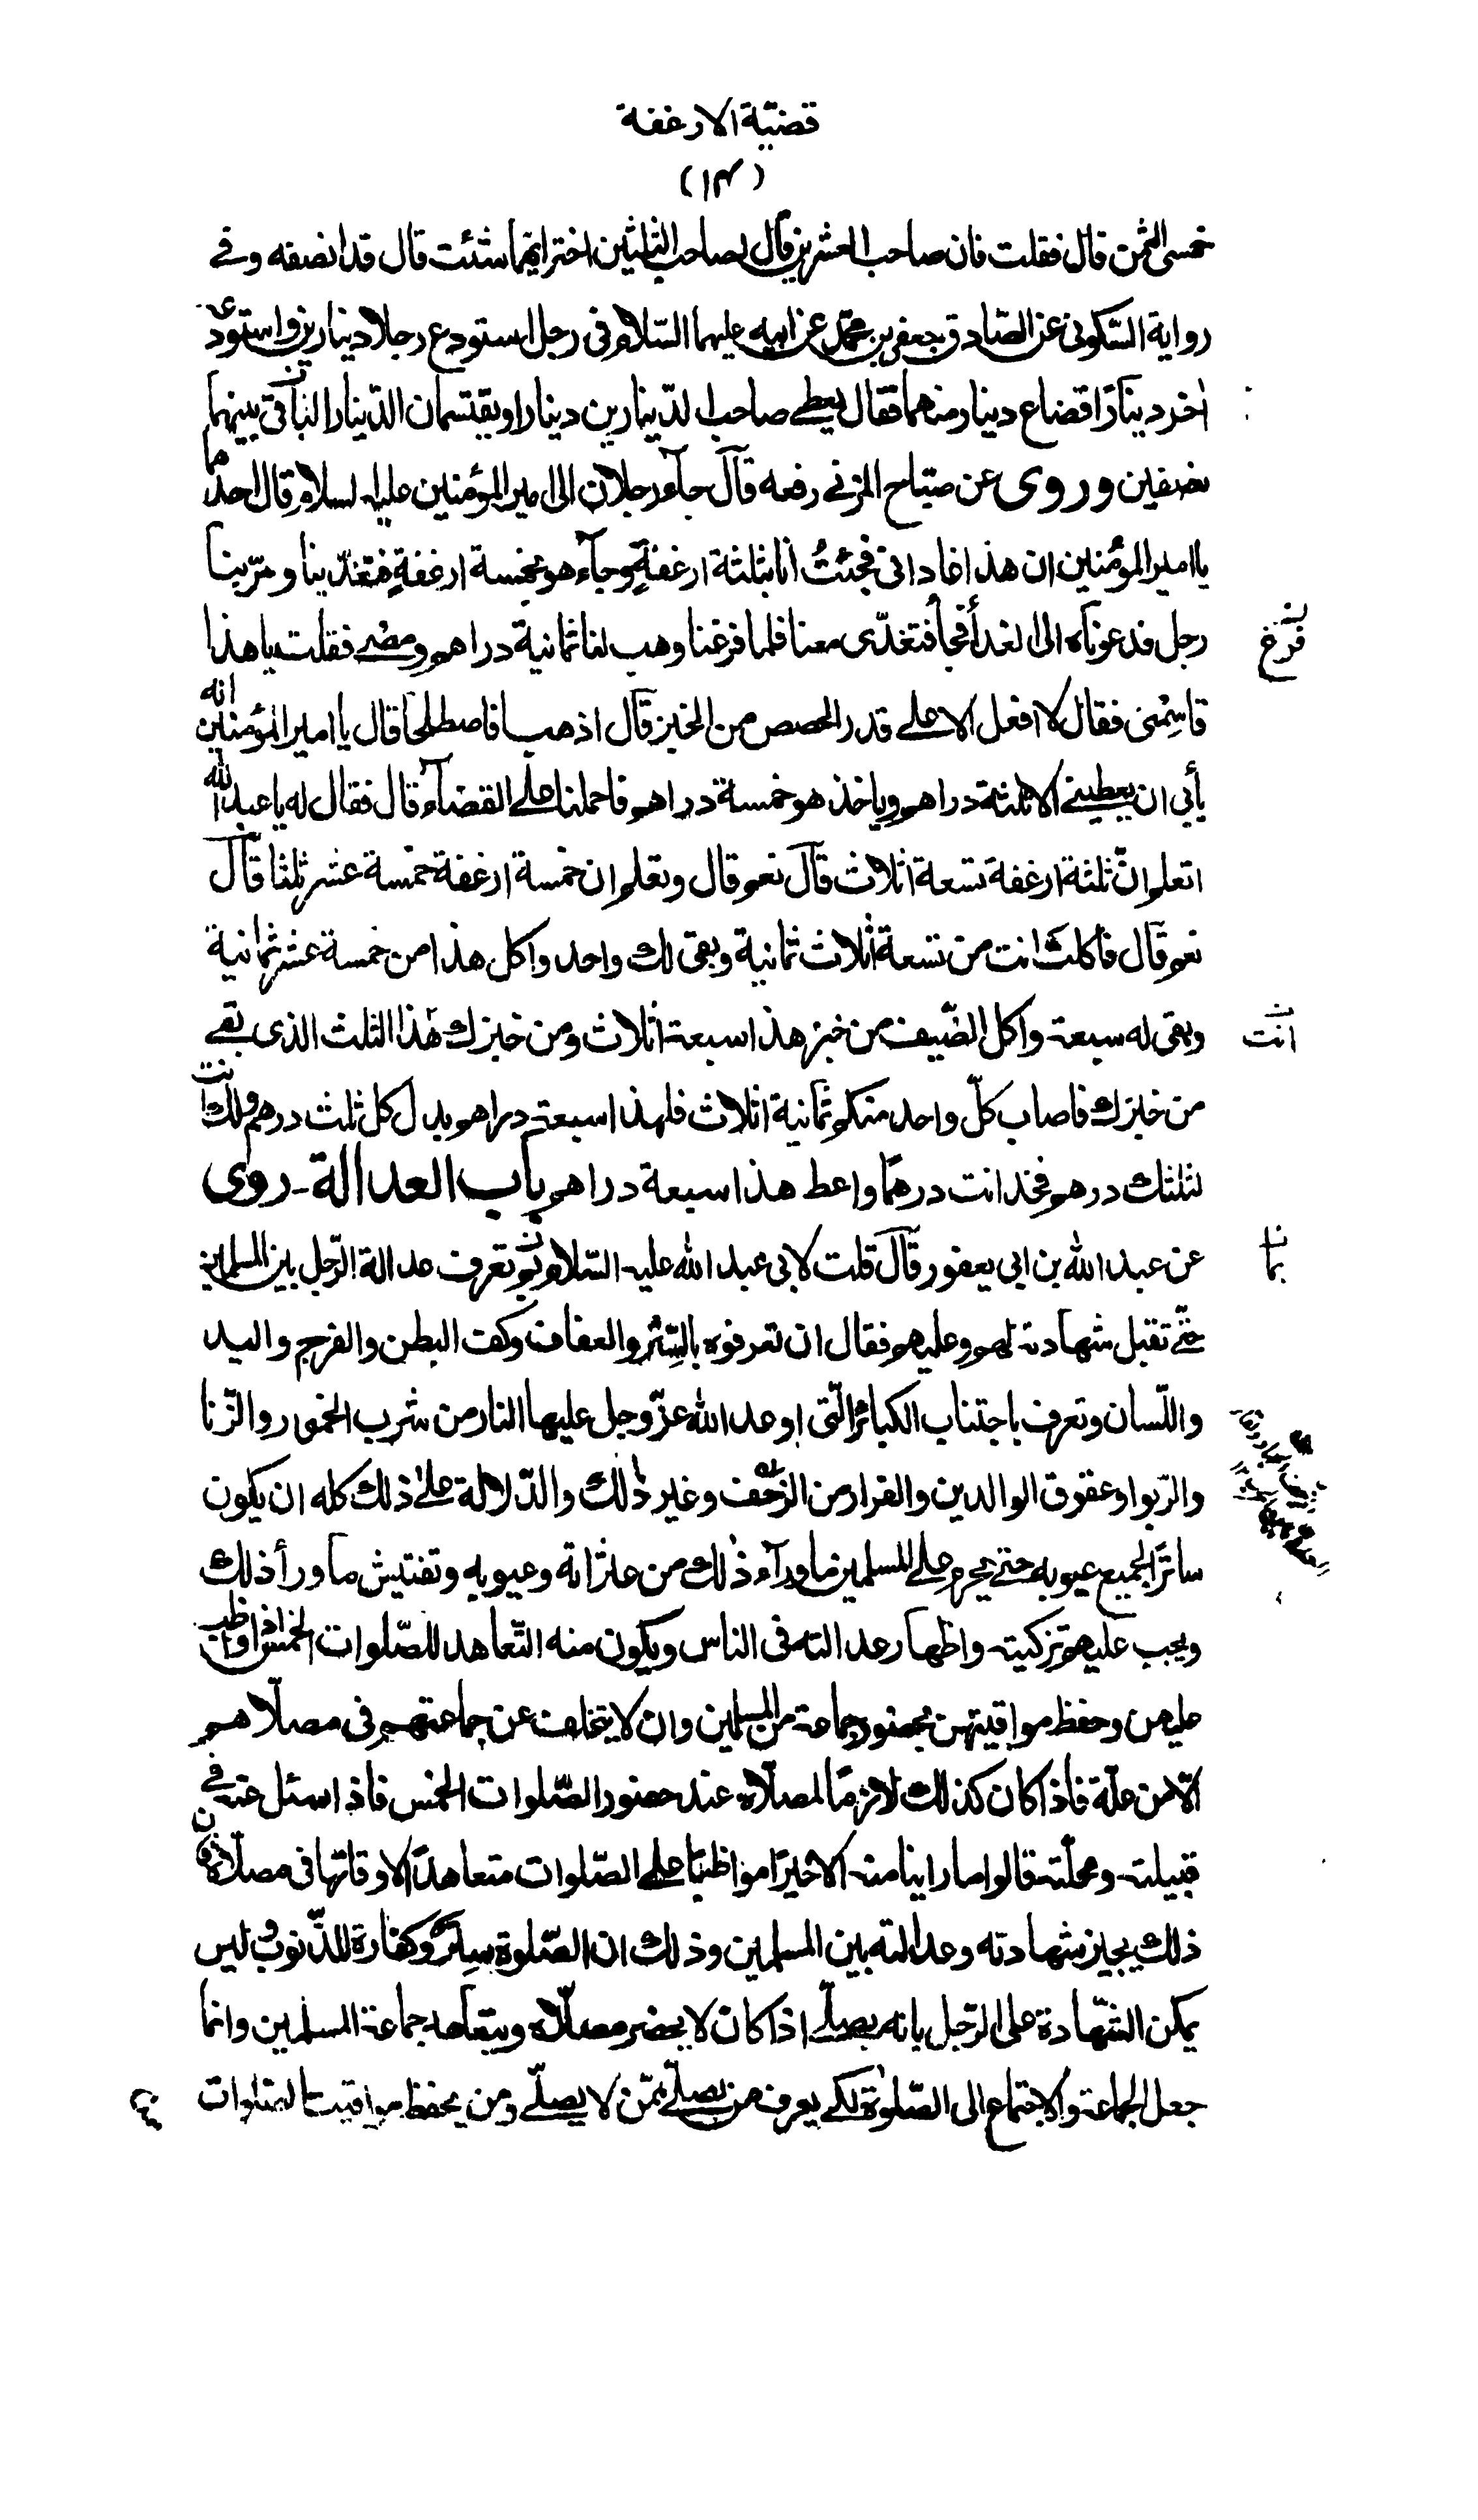 قضيّة الارغفة
(١٣)
خمسى الثمن قال فقلت فان صاحب العشرين قال لصاحب الثلثين اختر ايهما شئت قال قد انصفه وفى
رواية السّكونى عن الصّادق جعفر بن محمّد عن ابيه عليهما السّلام فى رجل استودع رجلا دينارين واستودعه
اٰخر دينارًا فضاع دينار منهما فقال يعطى صاحب الدّينارين دينارا ويقتسمان الدّينار الباقى بينهما
نصفين وروى عن صبّاح المزنى رفعه قآل جآء رجلان الى امير المؤمنين عليه السلام قال احدهما
يا امير المؤمنين ان هذا غادانى فجئتُ انا بثلثة ارغفةٍ وجآء هو بخمسة ارغفةٍ فتغدّينا ومرّ بنا
رجل فدعوناه الى الغدآء فجآء فتغدّى معنا فلما فرغنا وهب لنا ثمانية دراهم ومضى فقلت يا هذا
فرغ
قاسِمْنى فقال لا افعل الا على قدر الحصص من الخبز قآل اذهبا فاصطلحا قال يا امير المؤمنين انه
يأبى ان يعطينى الا ثلثة دراهم وياخذ هو خمسة دراهم فاحملنا على القضآء قال فقال له يا عبد الله
اتعلم انّ ثلثة ارغفة تسعة اثلاث قآل نعم قال وتعلم ان خمسة ارغفة خمسة عشر ثلثا قآل
نعم قآل فاكلت انت من تسعة اثلاث ثمانية وبقى لك واحد واكل هذا من خمسة عشر ثمانية
وبقى له سبعة واكل الضّيف من خبز هذا سبعة اثلاث ومن خبزك هٰذا الثلث الذى بقى
انت
من خبزك فاصاب كلّ واحد منكم ثمانية اثلاث فلهذا سبعة دراهم بدل كل ثلث درهم ولك انت
لثلثك درهم فخذ انت درهمًا واعط هذا سبعة دراهم باب العدالة روى
عن عبد الله بن ابى يعفور قآل قلت لابى عبد الله عليه السّلام بم تعرف عدالة الرّجل بين المسلمين
بما
حتّى تقبل شهادته لهم وعليهم فقال ان تعرفوه بالسِّتْر والعفاف وكف البطن والفرج واليد
واللّسان وتعرف باجتناب الكبائر الّتى اوعد الله عزّ وجل عليها النار من شرب الخمور والزّنا
والرّبوا وعقوق الوالدين والفرار من الزّحف وغير ذٰلك والدّلالة علىٰ ذلك كله ان يكون
ساترًا لجميع عيوبه حتى يحرم على المسلمين ما ورآء ذٰلك من عثراته وعيوبه وتفتيش ما ورأ ذلك
ويجب عليهم تزكيته واظهار عدالته فى الناس ويكون منه التّعاهد للصّلوات الخمس اذا واظب
عليهن وحفظ مواقيتهن بحضور جماعة من المسلمين وان لا يتخلف عن جماعتهم فى مصلّاهم
الّا من علّة فاذا كان كذلك لازمًا لمصلّاه عند حضور الصّلوات الخمس فاذا سئل عنه فى
قبيلته ومحلّته قالوا ما راينا منه الا خيرًا مواظبًا على الصّلوات متعاهدًا لاوقاتها فى مصلّاه فان
ذلك يجيز شهادته وعدالته بين المسلمين وذلك ان الصّلوة سِتْر وكفارة للذّنوب وليس
يمكن الشّهادة على الرّجل بانه يصلّى اذا كان لا يحضر مصلّاه ويتعاهد جماعة المسلمين وانما
جعل الجماعة والاجتماع الى الصّلوٰة لكى يعرف من يصلّى ممّن لا يصلّى ومن يحفظ مواقيت الصّلوات